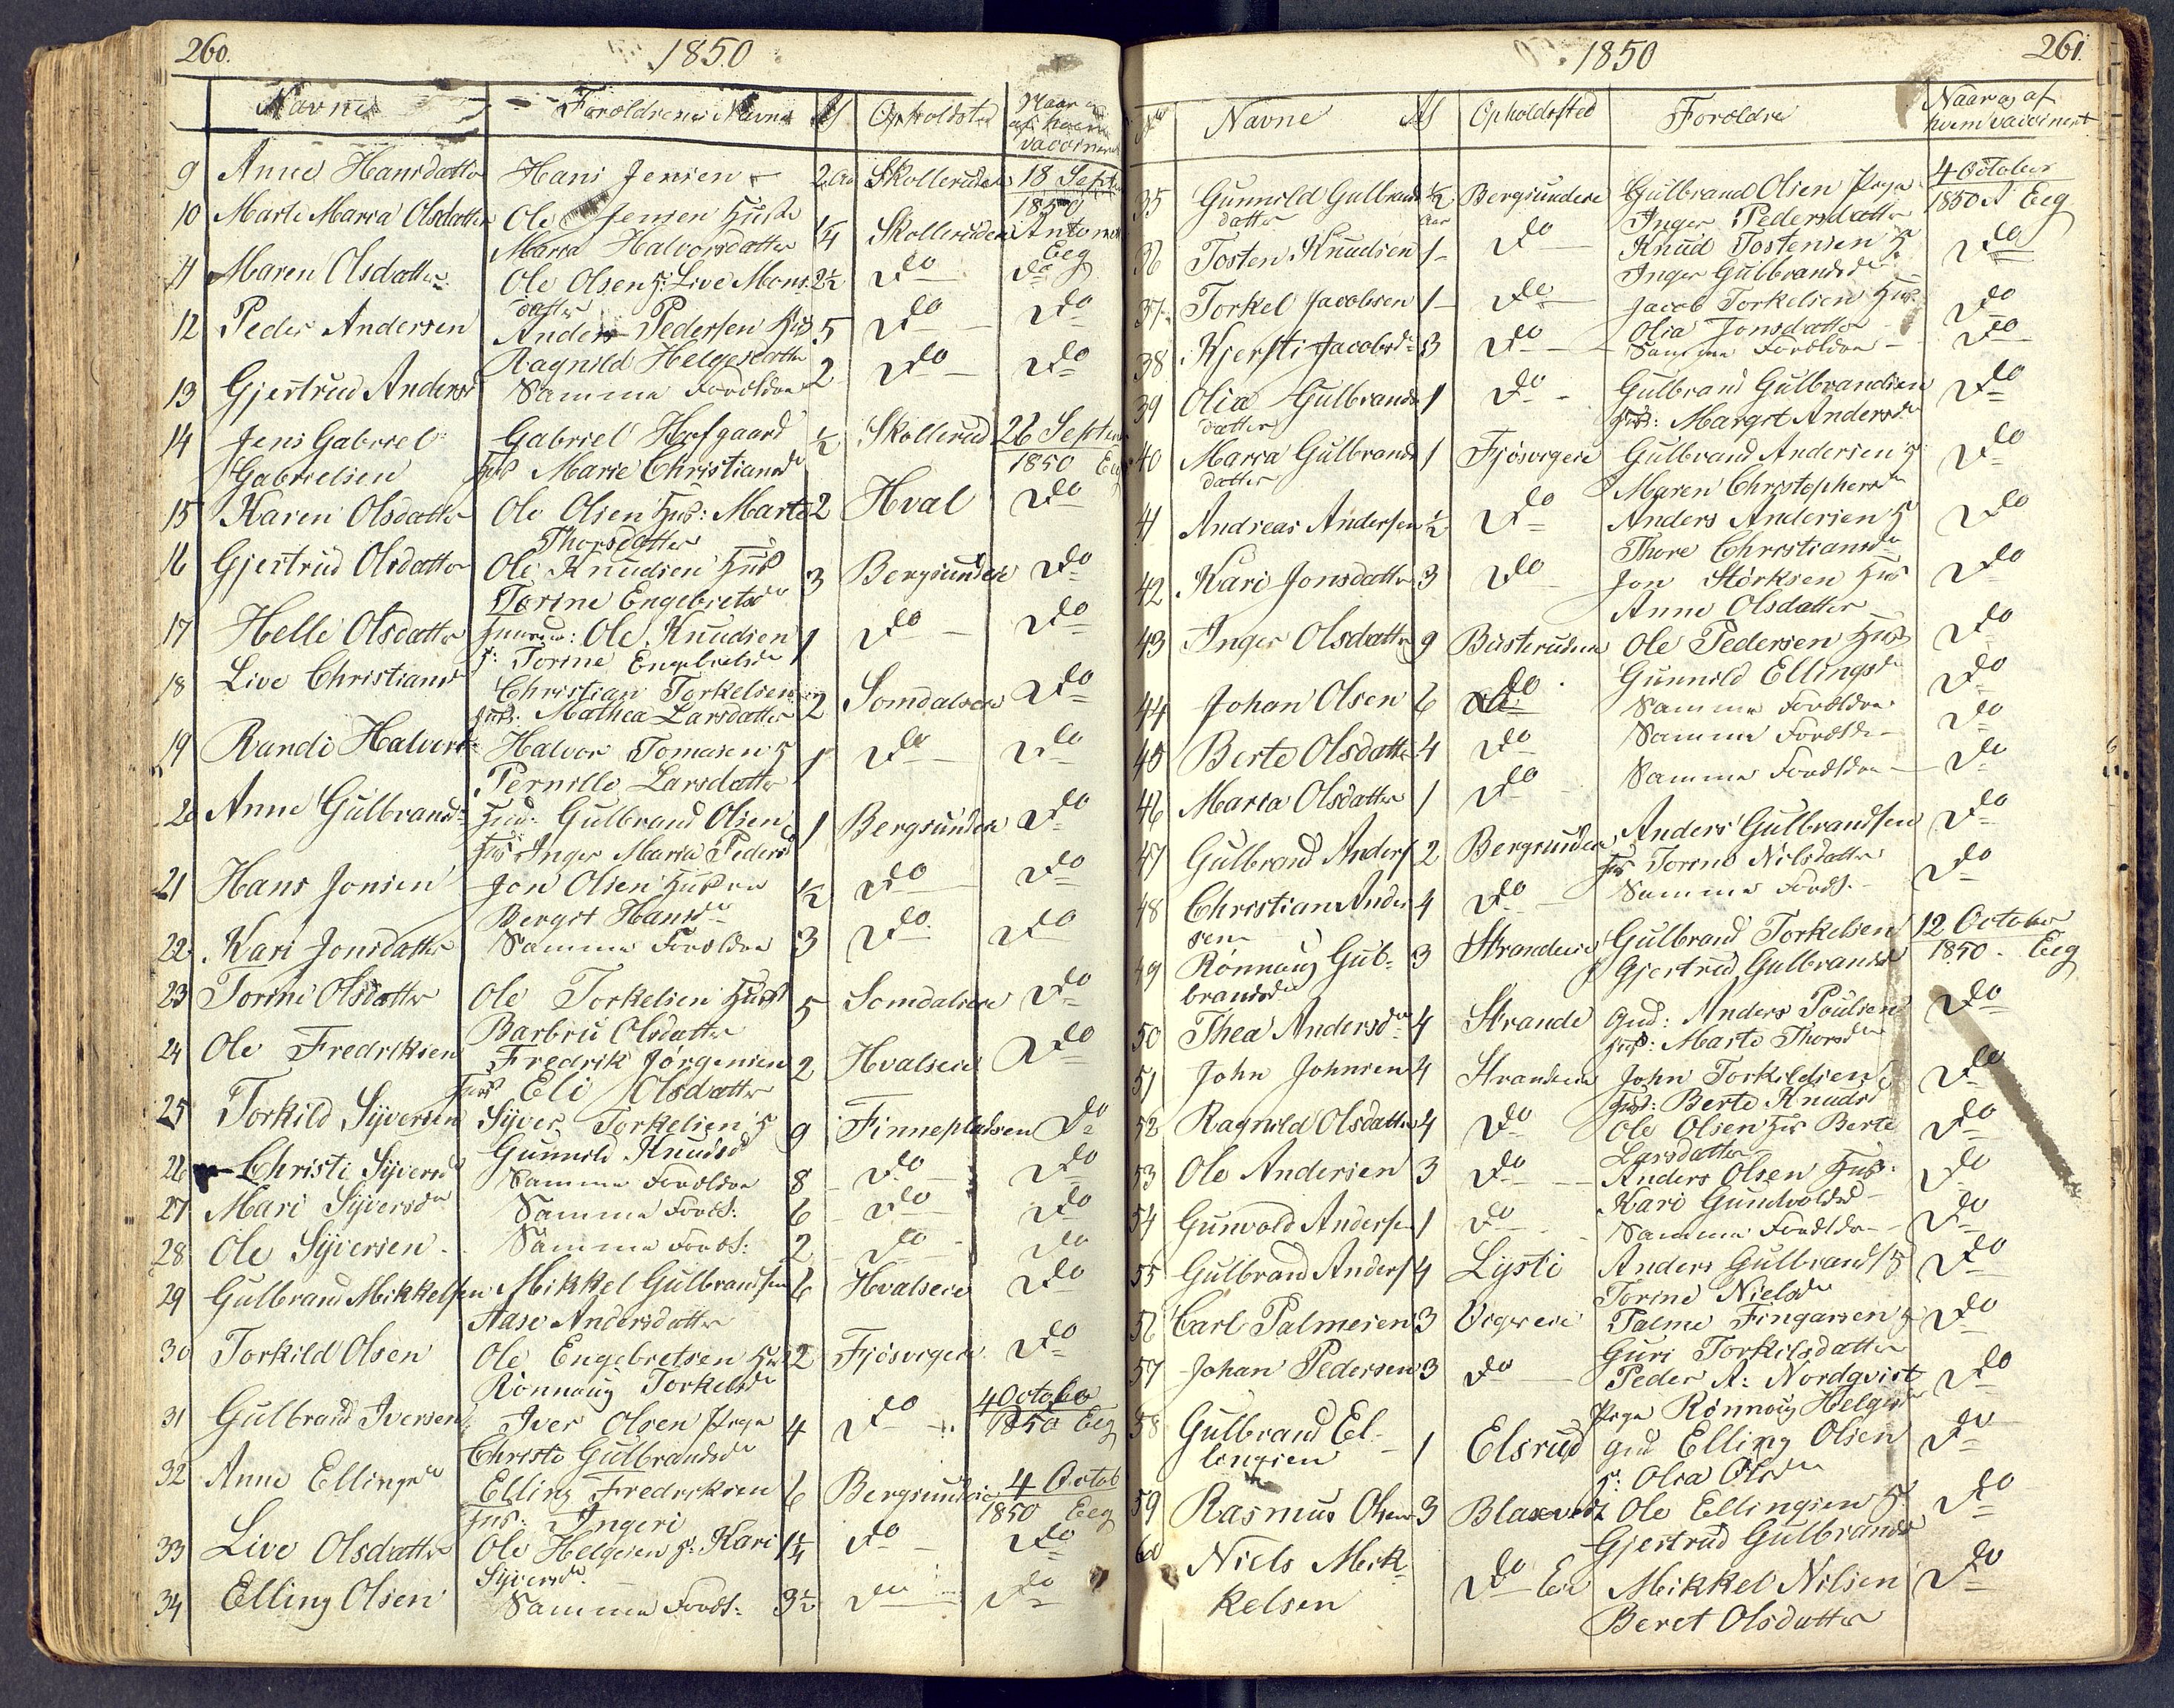 260.
1850
Navne Forældrenes Navne Al Opholdsted Naar og af hvem vaccineret
9 Anne Hansdatter Hans Jensen 2 Aar Skollerudeie 18 Septbr 1850
10 Marte Maria Olsdatter Ole Jensen Hustr 1/4 Skollerudeie Anton Eeg
Maria Halvorsdatter
11 Maren Olsdatter Ole Olsen H: Live Mons 2½ Do Do
datter
12 Peder Andersen Anders Pedersen Hus 5 Do Do
Ragnild Helgesdatter
13 Gjertrud Andersd Samme Forældre 2 Do Do
14 Jens Gabriel Gabriel Hofgaard ½ Skollerud 26 Septem
Gabrielsen Hus Marie Christiansd 1850 Eeg
15 Karen Olsdatter Ole Olsen Hus: Marte 2 Hval Do
Thorsdatter
16 Gjertrud Olsdatter Ole Knudsen Hus 3 Bergsundeie Do
Torine Engebretsd
17 Helle Olsdatter Ole Knudsen 1 Do Do
H: Torine Engebretsd
18 Live Christiansd Christian Torkelsen 2 Somdalseie Do
Hus: Mathea Larsdatter
19 Randi Halvors Halvor Tomasen H 1 Do Do
Pernille Larsdatter
20 Anne Gulbrandsd Gulbrand Olsen 1 Bergsundeie Do
Hus Inger Maria Pedersd
21 Hans Jonsen Jon Olsen Hustru ½ Do Do
Bergit Hansd
22 Kari Jonsdatter Samme Forældre 3 Do Do
23 Torine Olsdatter Ole Torkelsen Hust 5 Somdalseie Do
Barbru Olsdatter
24 Ole Fredriksen Fredrik Jörgensen 2 Hvalseie Do
Hus Eli Olsdatter
25 Torkild Syversen Syver Torkelsen H 9 Finnepladsen Do
Gunnild Knudsd
26 Christi Syversd Samme Forældre 8 Do Do
27 Mari Syversd Samme Foræld: 6 Do Do
28 Ole Syversen Samme Foræld: 2 Do Do
29 Gulbrand Mikkelsen Mikkel Gulbrandsen 6 Hvalseie Do
Aase Andersdatter
30 Torkild Olsen Ole Engebretsen Hus 2 Fjösvigeie Do
Rönnaug Torkelsd
31 Gulbrand Iversen Iver Olsen Pige 4 Do 4 October
Christi Gulbrandsd 1850 Eeg
32 Anne Ellingsd Elling Fredriksen 6 Bergsundeie 4 Octob
Hus: Ingeri 1850 Eeg
33 Live Olsdatter Ole Helgesen H: Kari 1¼ Do Do
Syversd
34 Elling Olsen Samme Foræld: 3½ Do Do
261.
1850
No Navne Al Opholdsted Forældre Naar og af hvem vaccineret
35 Gunnild Gulbrands ½ Bergsundeie Gulbrand Olsen Pige 4 October
datter Aar Inger Pedersdatter 1850 A Eeg
36 Tosten Knudsen 1 Do Knud Tostensen H Do
Inger Gulbrandsd
37 Torkel Jacobsen 1 Do Jacob Torkelsen Hus Do
Olia Jonsdatter
38 Kjersti Jacobsd 3 Do Samme Forældre Do
39 Olia Gulbrands 1 Do Gulbrand Gulbrandsen Do
datter Hus: Margit Andersd
40 Maria Gulbrands 1 Fjösvigeie Gulbrand Andersen H Do
datter Maren Christophersd
41 Andreas Andersen ½ Do Anders Andersen H Do
Thore Christiansd
42 Kari Jonsdatter 3 Do Jon Störksen Hus Do
Anne Olsdatter
43 Inger Olsdatter 9 Busterudeie Ole Pedersen Hus Do
Gunnild Ellingsd
44 Johan Olsen 6 Do Samme Forældre Do
45 Berte Olsdatter 4 Do Samme Foræld Do
46 Maria Olsdatter 1 Do Samme Forældre Do
47 Gulbrand Anders 2 Bergsundeie Anders Gulbrandsen Do
Hus Torine Nilsdatter
48 Christian Ander 4 Do Samme Foræld. Do
sen
49 Rönnaug Gul- 3 Strandeie Gulbrand Torkelsen 12 October
brandsd Gjertrud Gulbrandsd 1850. Eeg
50 Thea Andersd 4 Strande Gmd: Anders Poulsen Do
Hus: Marte Thorsd
51 John Johnsen 4 Strandeie John Torkildsen Do
Hus: Berte Knudsd
52 Ragnild Olsdatter 4 Do Ole Olsen Hus Berte Do
Larsdatter
53 Ole Andersen 3 Do Anders Olsen Hus: Do
Kari Gundvoldsd
54 Gunvold Andersen 1 Do Samme Forældre Do
55 Gulbrand Anders 4 Lysti Anders Gulbrands H Do
Torine Nielsd
56 Carl Palmesen 3 Vigereie Palme Fingarsen H Do
Guri Torkilsdatter
57 Johan Pedersen 3 Do Peder A: Nordqvist Do
Pige Rönnaug Helgesd
58 Gulbrand El- 1 Elsrud Gmd Elling Olsen Do
lingsen H: Olia Olsd
59 Rasmus Olsen 3 Blaxvedt Ole Ellingsen H Do
Gjertrud Gulbrandsd
60 Niels Mik- Do Eie Mikkel Nilsen Do
kelsen Beret Olsdatter